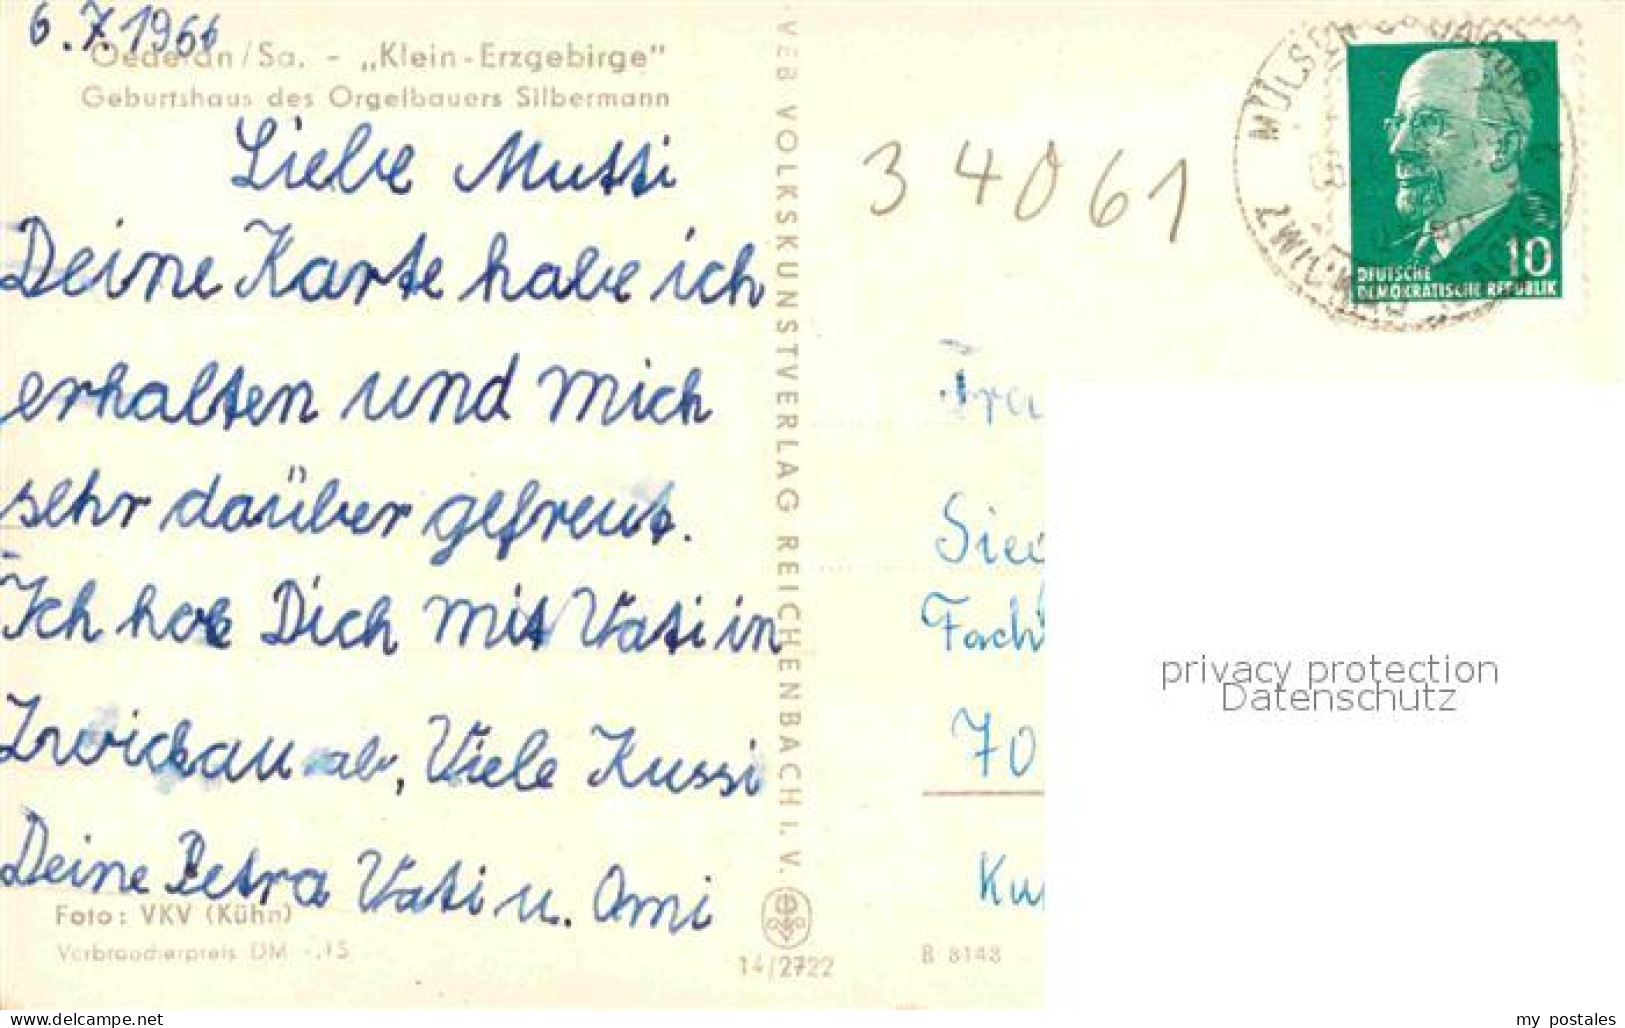 6.7.1966
Oederan/Sa. - „Klein-Erzgebirge"
Geburtshaus des Orgelbauers Silbermann
Liebe Mutti
Deine Karte habe ich
erhalten und mich
sehr daüber gefreut.
Ich hole Dich mit Vati in
Zwickau ab, Viele Kussi
Deine Petra Vati u. Omi
Foto: VKV (Kühn)
Verbraucherpreis DM -,15
VEB VOLKSKUNSTVERLAG REICHENBACH I. V.
14/2722
34061
MÜLSEN ST JACOB
ZWICKAU
10
DEUTSCHE
DEMOKRATISCHE REPUBLIK
Frau
70
B 8148
privacy protection
Datenschutz
delcampe.net
my_postales